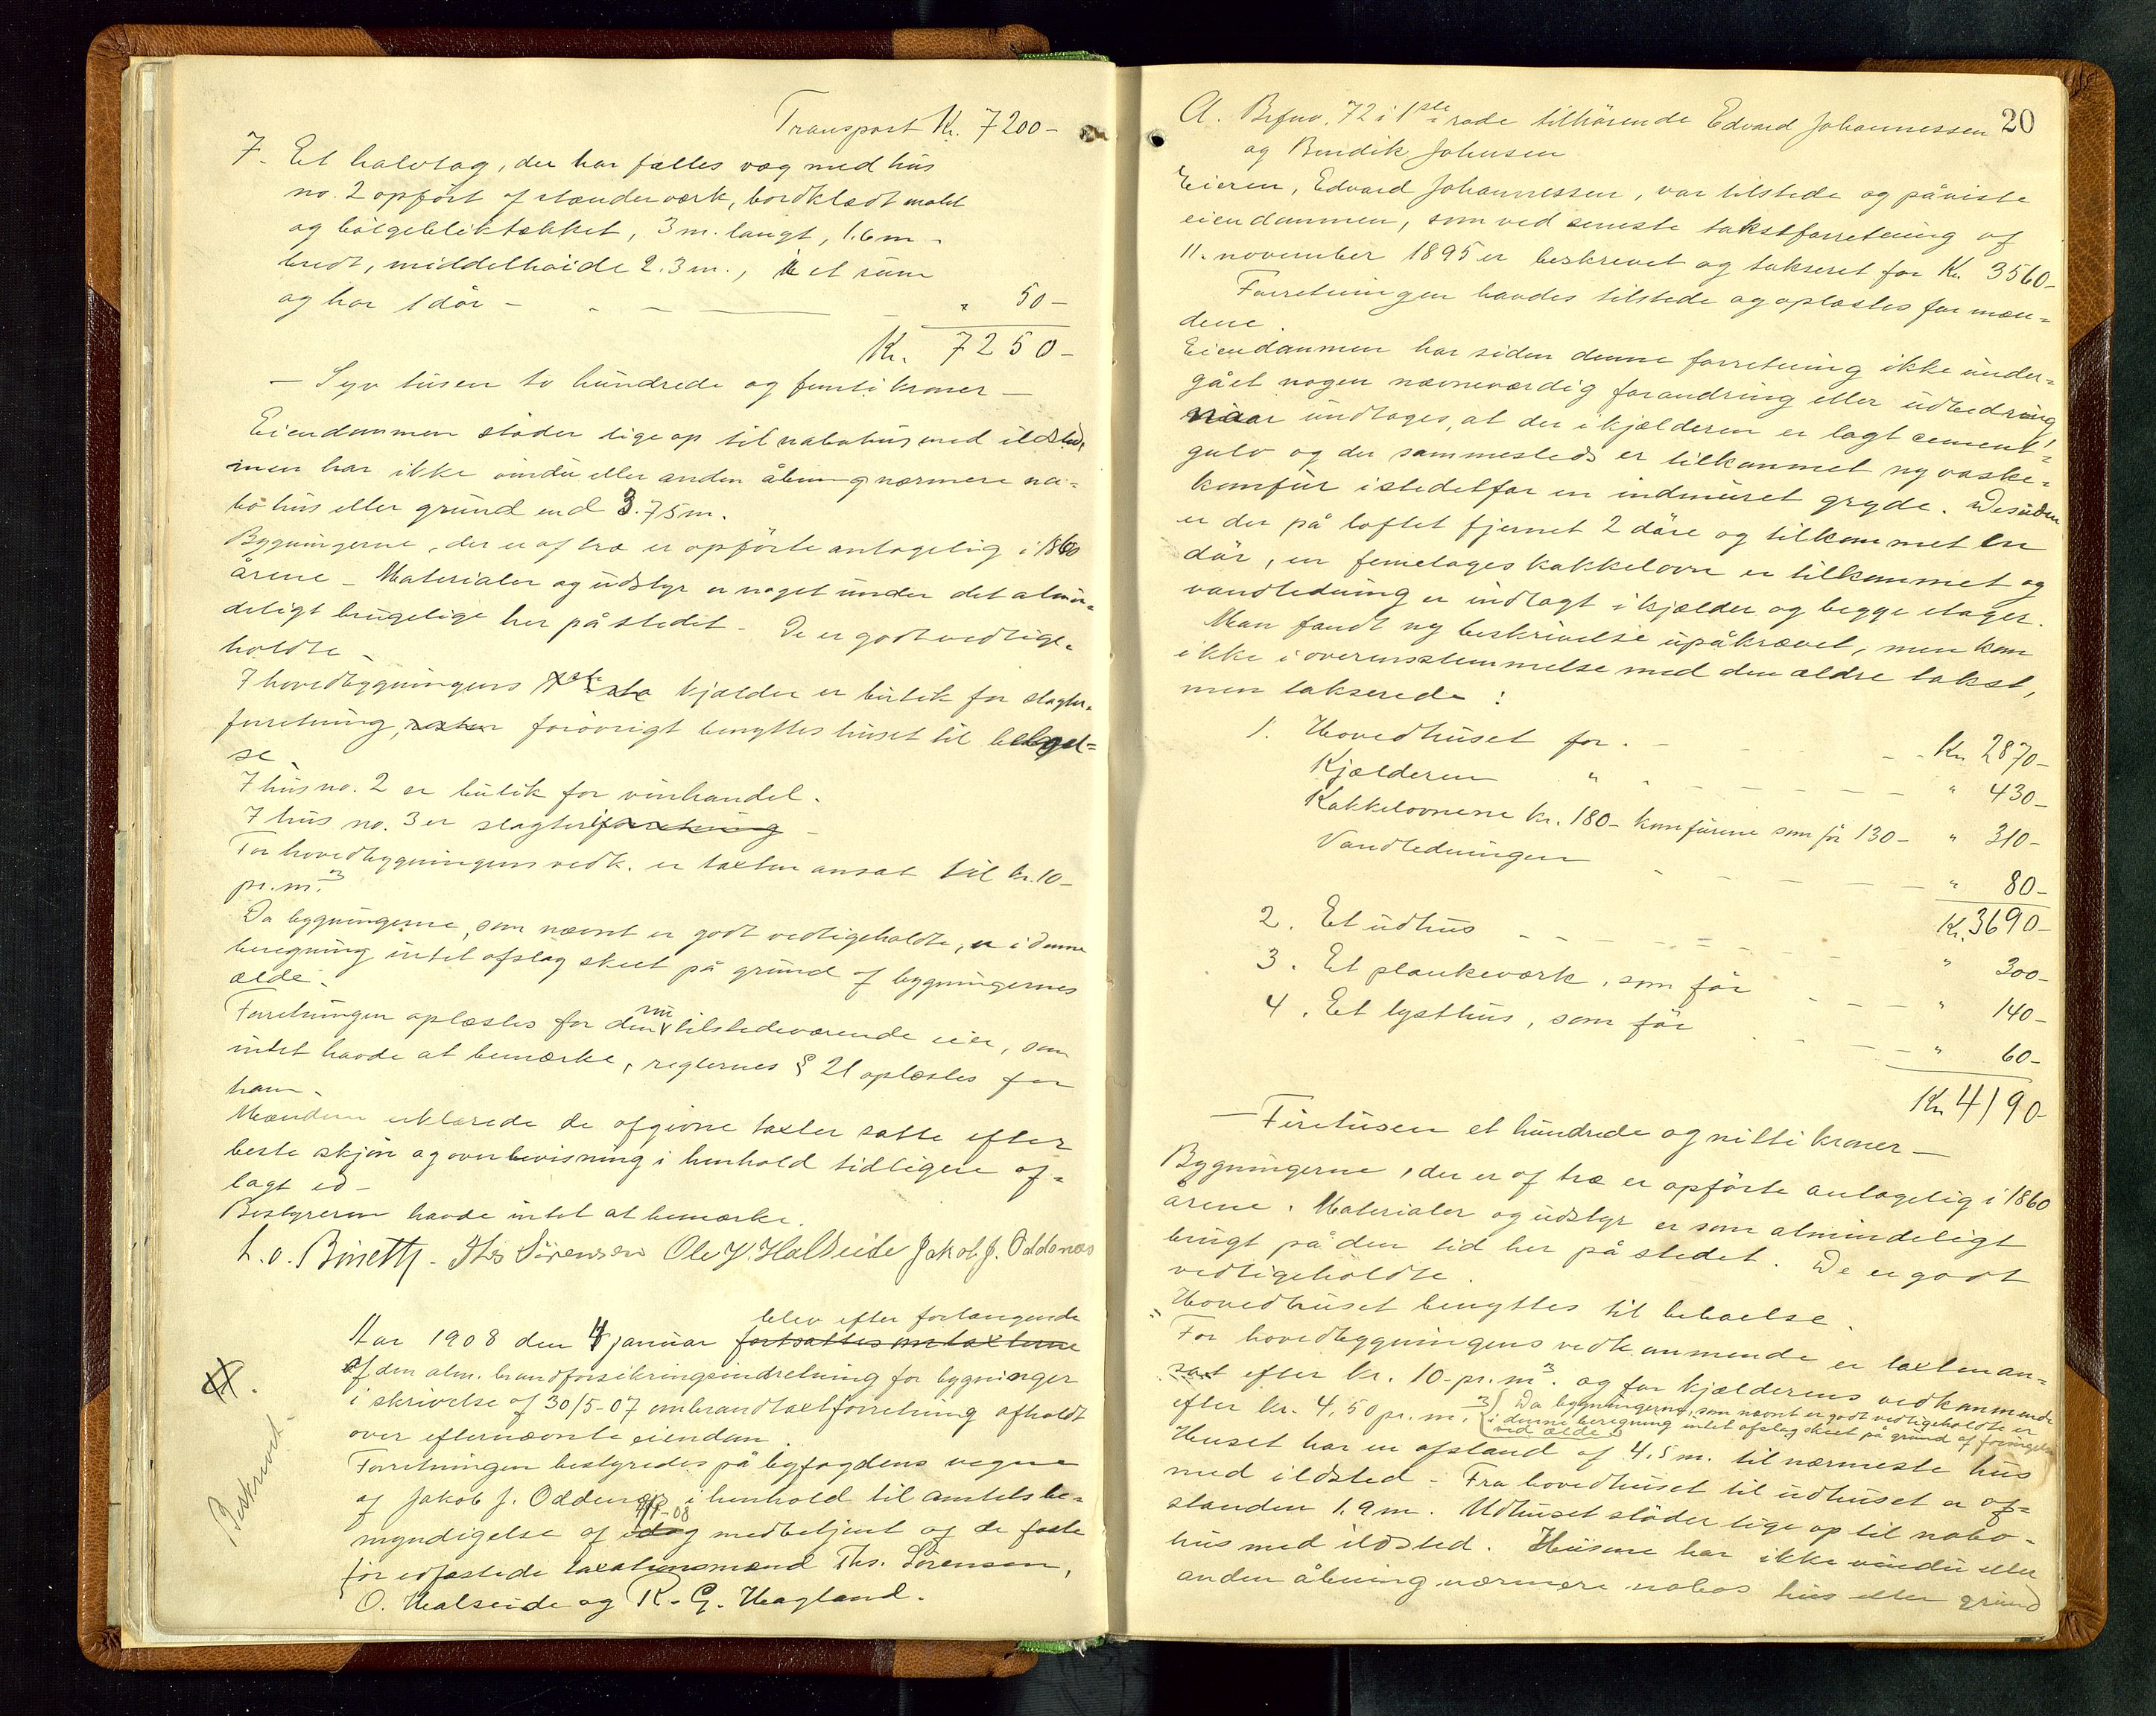 Transport Kr. 7200-
7. Et halvtag, der har fælles væg med hus
no. 2 opført af stænderværk, bordklædt malet
og bølgebliktækket, 3 m. langt, 1.6 m.
bredt, middelhøide 2.3 m., et rum
og har 1 dør - - - — " 50-
Kr. 7250-
— Syv tusen to hundrede og femti kroner —
Eiendommen støder lige op til nabohus med ildsted,
men har ikke vindu eller anden åbning nærmere na-
bohus eller grund end 3.75 m.
Bygningerne, der er af træ er opførte antagelig i 1860
årene - Materialer og udstyr er noget under det almin-
deligt brugelige her på stedet - De er godt vedlige-
holdte -
I hovedbygningens kjælder er butik for slagter-
forretning, forøvrigt benyttes huset til beboel-
se
I hus no. 2 er butik for vinhandel.
I hus no. 3 er slagteriforretning -
For hovedbygningens vedk. er taxten ansat til kr. 10-
pr. m.³
Da bygningerne, som nævnt er godt vedligeholdte, er i denne
beregning intet afslag skeet på grund af bygningernes
ælde.
Forretningen oplæstes for den nu tilstedeværende eier, som
intet havde at bemærke, reglernes § 21 oplæstes for
ham.
Mændene erklærede de afgivne taxter satte efter
beste skjøn og overbevisning i henhold tidligere af-
lagt ed -
Bestyreren havde intet at bemærke.
L. o. Brinette. Ths Sørensen Ole J. Halseide Jakob J. Oddenæs
blev efter forlangende
Aar 1908 den 4 januar fortsattes
af den alm. brandforsikringsindretning for bygninger
i skrivelse af 30/5-07 ombrandtaxtforretning afholdt
over efternævnte eiendom.
Forretningen bestyredes på byfogdens vegne
af Jakob J. Oddenæs i henhold til amtets be-
myndigelse af idag medbetjent af de faste
før edfæstede taxationsmænd Ths. Sørensen,
O. Halseide og R. G. Hagland.
Beskrevet
A. Brfnr. 72 i 1ste rode tilhørende Edvard Johannessen 20
og Bendik Johnsen
Eieren, Edvard Johannessen, var tilstede og påviste
eiendommen, som ved seneste takstforretning af
11. november 1895 er beskrevet og takseret for Kr. 3560-
Forretningen havdes tilstede og oplæstes for mæn-
dene.
Eiendommen har siden denne forretning ikke under-
gået nogen nævneværdig forandring eller udbedring,
naar undtages, at der i kjælderen er lagt cement-
gulv og der sammesteds er tilkommet ny vaske-
komfur istedetfor en indmuret gryde. Desuden
er der på loftet fjernet 2 døre og tilkommet en
dør, en femetages kakkelovn er tilkommet og
vandledning er indlagt i kjælder og begge etager.
Man fandt ny beskrivelse upåkrævet, men kom
ikke i overensstemmelse med den ældre takst,
men takserede:
1. Hovedhuset for. - - - - Kr. 2870-
Kjælderen " - - - - " 430-
Kakkelovnene kr. 180- komfurene som før 130- " 310-
Vandledningen - - - - " 80-
Kr. 3690-
2. Et udhus - - - - " 300-
3. Et plankeværk, som før - - - " 140-
4. Et lysthus, som før - - - " 60-
Kr. 4190-
— Firetusen et hundrede og nitti kroner —
Bygningerne, der er af træ er opførte antagelig i 1860
årene. Materialer og udstyr er som almindeligt
brugt på den tid her på stedet. De er godt
vedligeholdte.
Hovedhuset benyttes til beboelse.
" For hovedbygningens vedkommende er taxten an-
sat efter kr. 10- pr. m³. og for kjælderens vedkommende
efter kr. 4,50 pr. m.³ { Da bygningerne, som nævnt er godt vedligeholdte er
i denne beregning intet afslag skeet på grund af forringelse
ved ælde.
Huset har en afstand af 4.5 m. til nærmeste hus
med ildsted - Fra hovedhuset til udhuset er af-
standen 1.9 m. Udhuset støder lige op til nabo-
hus med ildsted. Husene har ikke vindu eller
anden åbning nærmere nabos hus eller grund